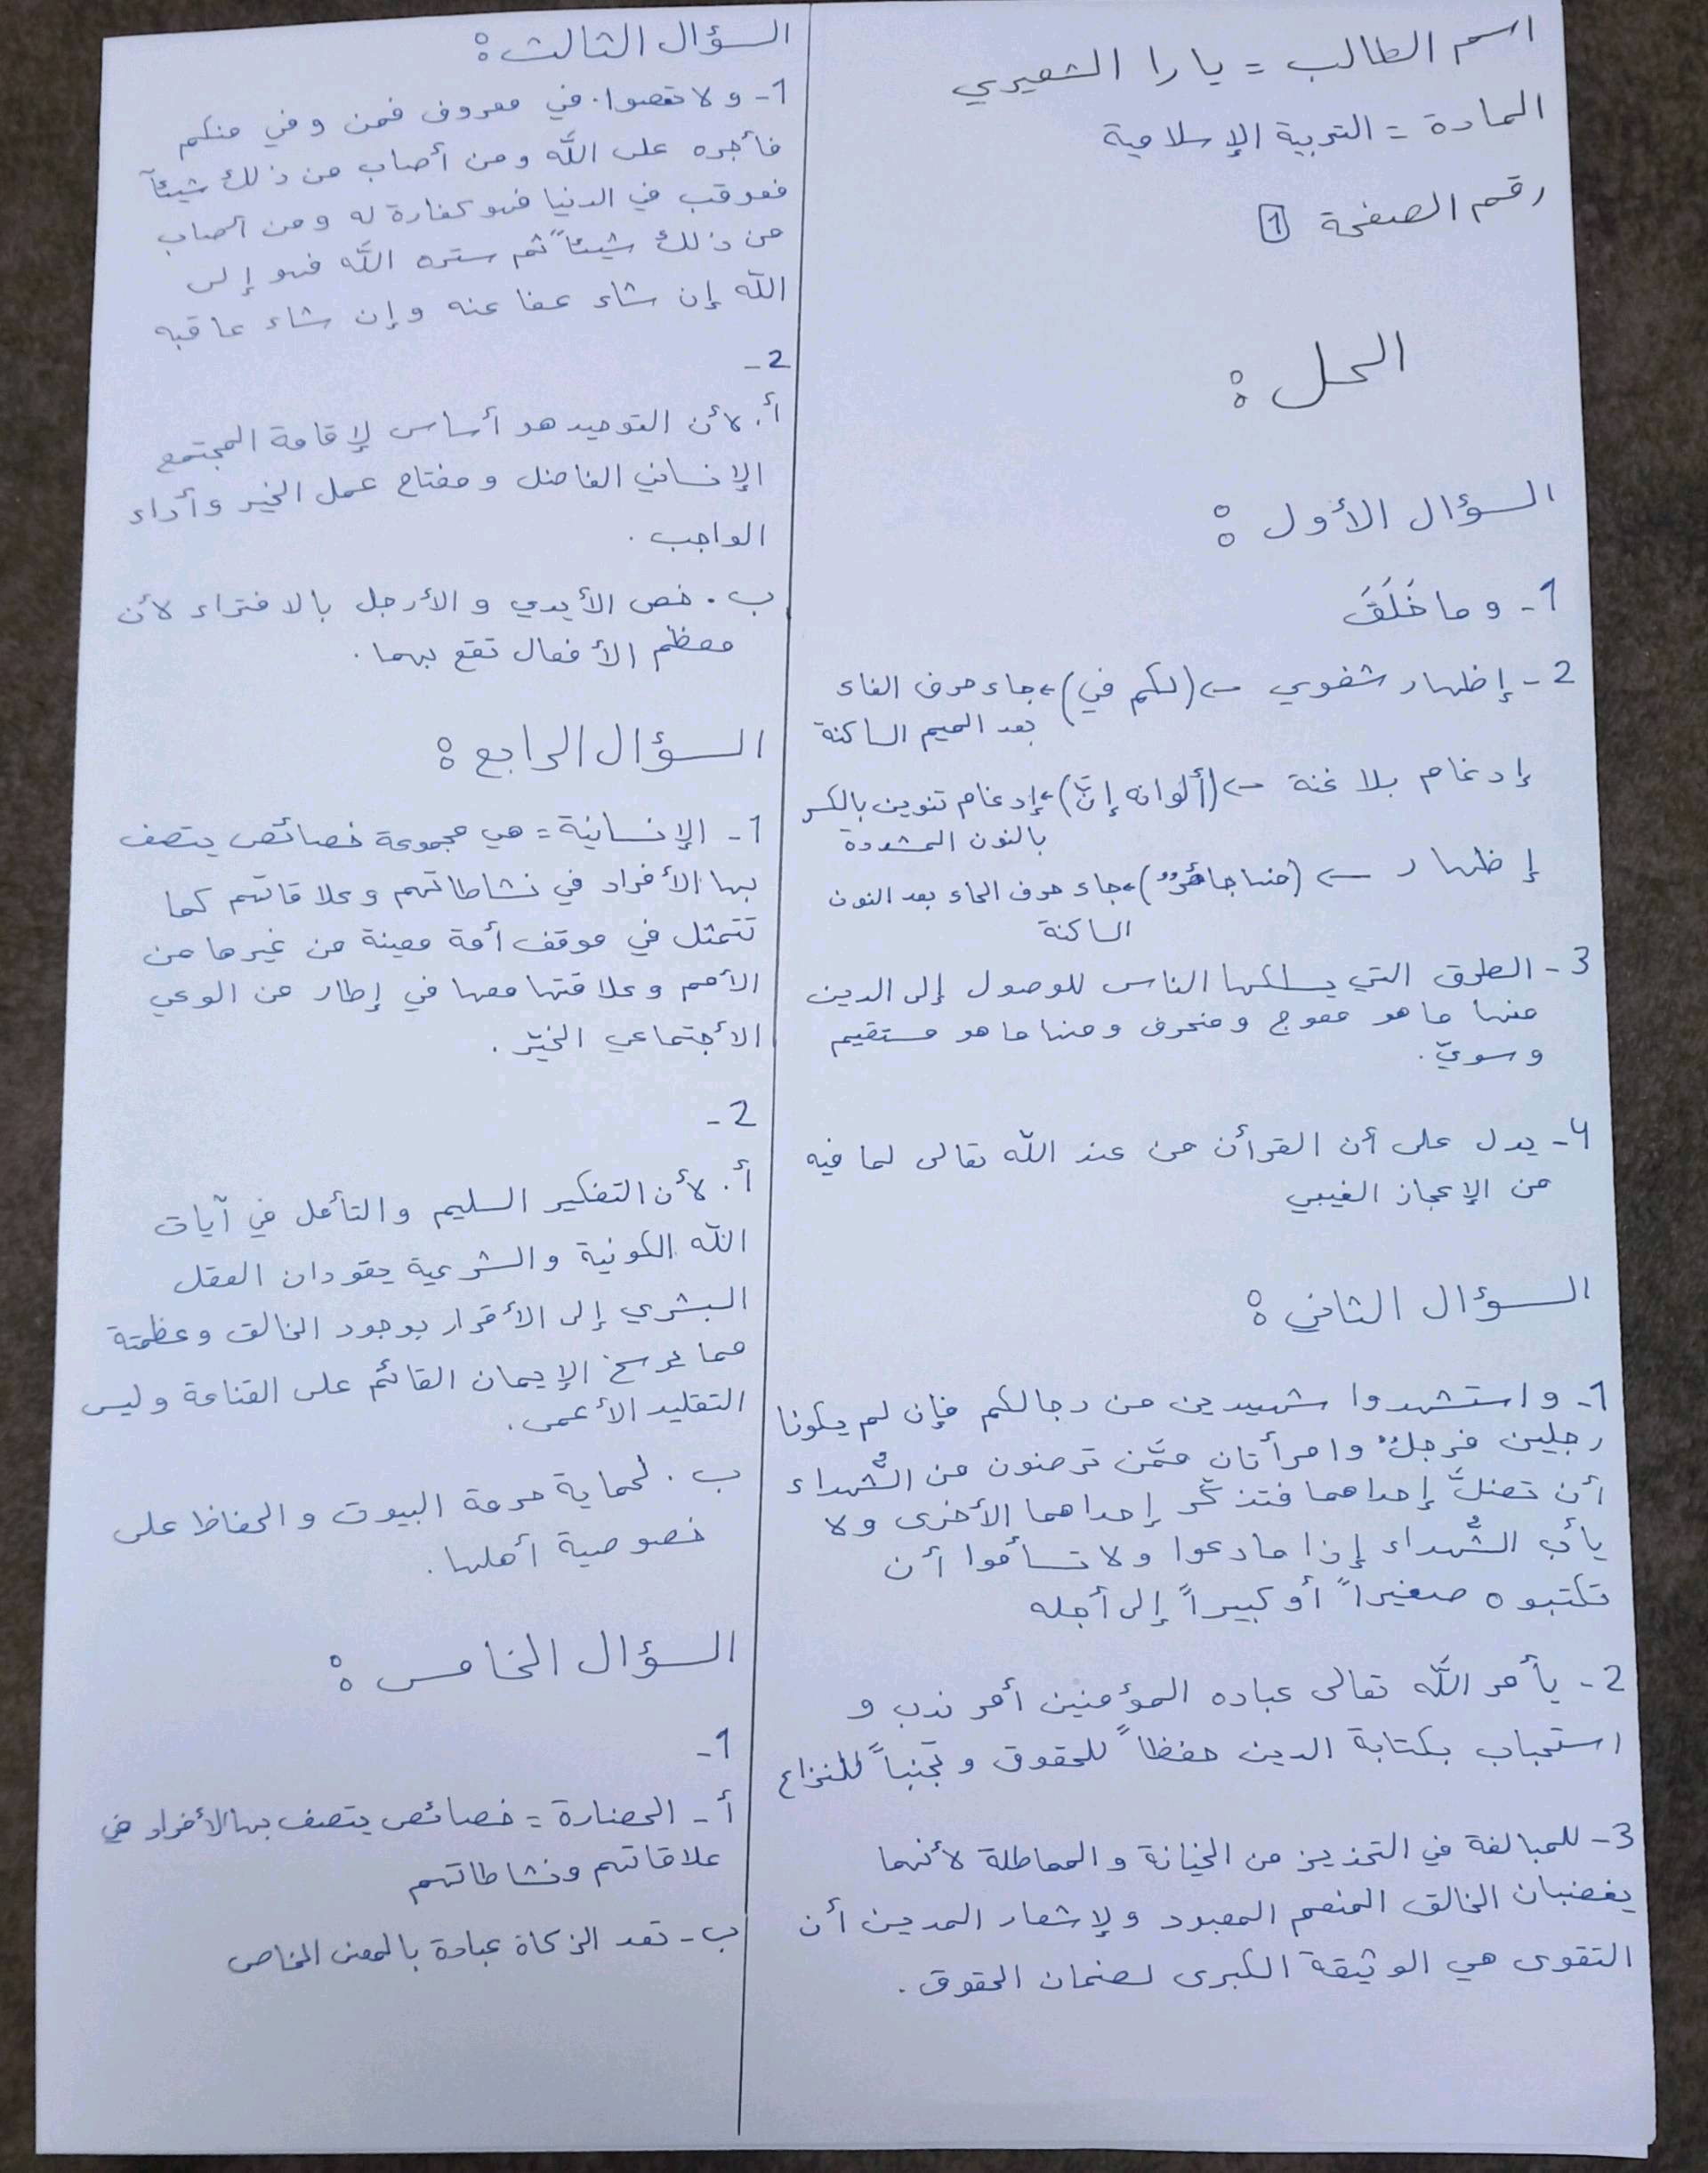 اسم الطالب = يارا الشعيري
المادة = التربية الإسلامية
رقم الصفحة 1
الحل :
السؤال الأول :
1- وما خَلَقَ
2- إظهار شفوي ← (لكم في) ← جاء حرف الفاء
بعد الميم الساكنة
إدغام بلا غنة ← (ألوانه إنّ) ← إدغام تنوين بالكسر
بالنون المشددة
إظهار ← (منها جائرٌ) ← جاء حرف الحاء بعد النون
الساكنة
3- الطرق التي يسلكها الناس للوصول إلى الدين
منها ما هو معوج ومنحرف ومنها ما هو مستقيم
وسويّ.
4- يدل على أن القرأن من عند الله تعالى لما فيه
من الإعجاز الغيبي
السؤال الثاني :
1- واستشهدوا شهيدين من رجالكم فإن لم يكونا
رجلين فرجلٌ وامرأتان ممَّن ترضون من الشُّهداء
أن تضلَّ إحداهما فتذكّر إحداهما الأخرى ولا
يأب الشُّهداء إذا ما دعوا ولا تسأموا أن
تكتبوه صغيراً أو كبيراً إلى أجله
2- يأمر الله تعالى عباده المؤمنين أمر ندب و
استحباب بكتابة الدين حفظاً للحقوق وتجنباً للنزاع
3- للمبالغة في التحذير من الخيانة والمماطلة لأنهما
يغضبان الخالق المنعم المعبود ولإشعار المدين أن
التقوى هي الوثيقة الكبرى لضمان الحقوق.
السؤال الثالث :
1- ولا تعصوا في معروف فمن وفي منكم
فأجره على الله ومن أصاب من ذلك شيئاً
فعوقب في الدنيا فهو كفارة له ومن اصاب
من ذلك شيئاً ثم ستره الله فهو إلى
الله إن شاء عفا عنه وإن شاء عاقبه
2-
أ. لأن التوحيد هو أساس لإقامة المجتمع
الإنساني الفاضل ومفتاح عمل الخير وأداء
الواجب.
ب. خص الأيدي والأرجل بالافتراء لأن
معظم الأفعال تقع بهما.
السؤال الرابع :
1- الإنسانية = هي مجموعة خصائص يتصف
بها الأفراد في نشاطاتهم وعلاقاتهم كما
تتمثل في موقف أمة معينة من غيرها من
الأمم وعلاقتها معها في إطار من الوعي
الأجتماعي الخيّر.
2-
أ. لأن التفكير السليم والتأمل في آيات
الله الكونية والشرعية يقودان العقل
البشري إلى الأقرار بوجود الخالق وعظمتة
مما يرسخ الإيمان القائم على القناعة وليس
التقليد الأعمى.
ب. لحماية حرمة البيوت والحفاظ على
خصوصية أهلها.
السؤال الخامس :
1-
أ- الحضارة = خصائص يتصف بها الأفراد في
علاقاتهم ونشاطاتهم
ب- تعد الزكاة عبادة بالمعنى الخاص